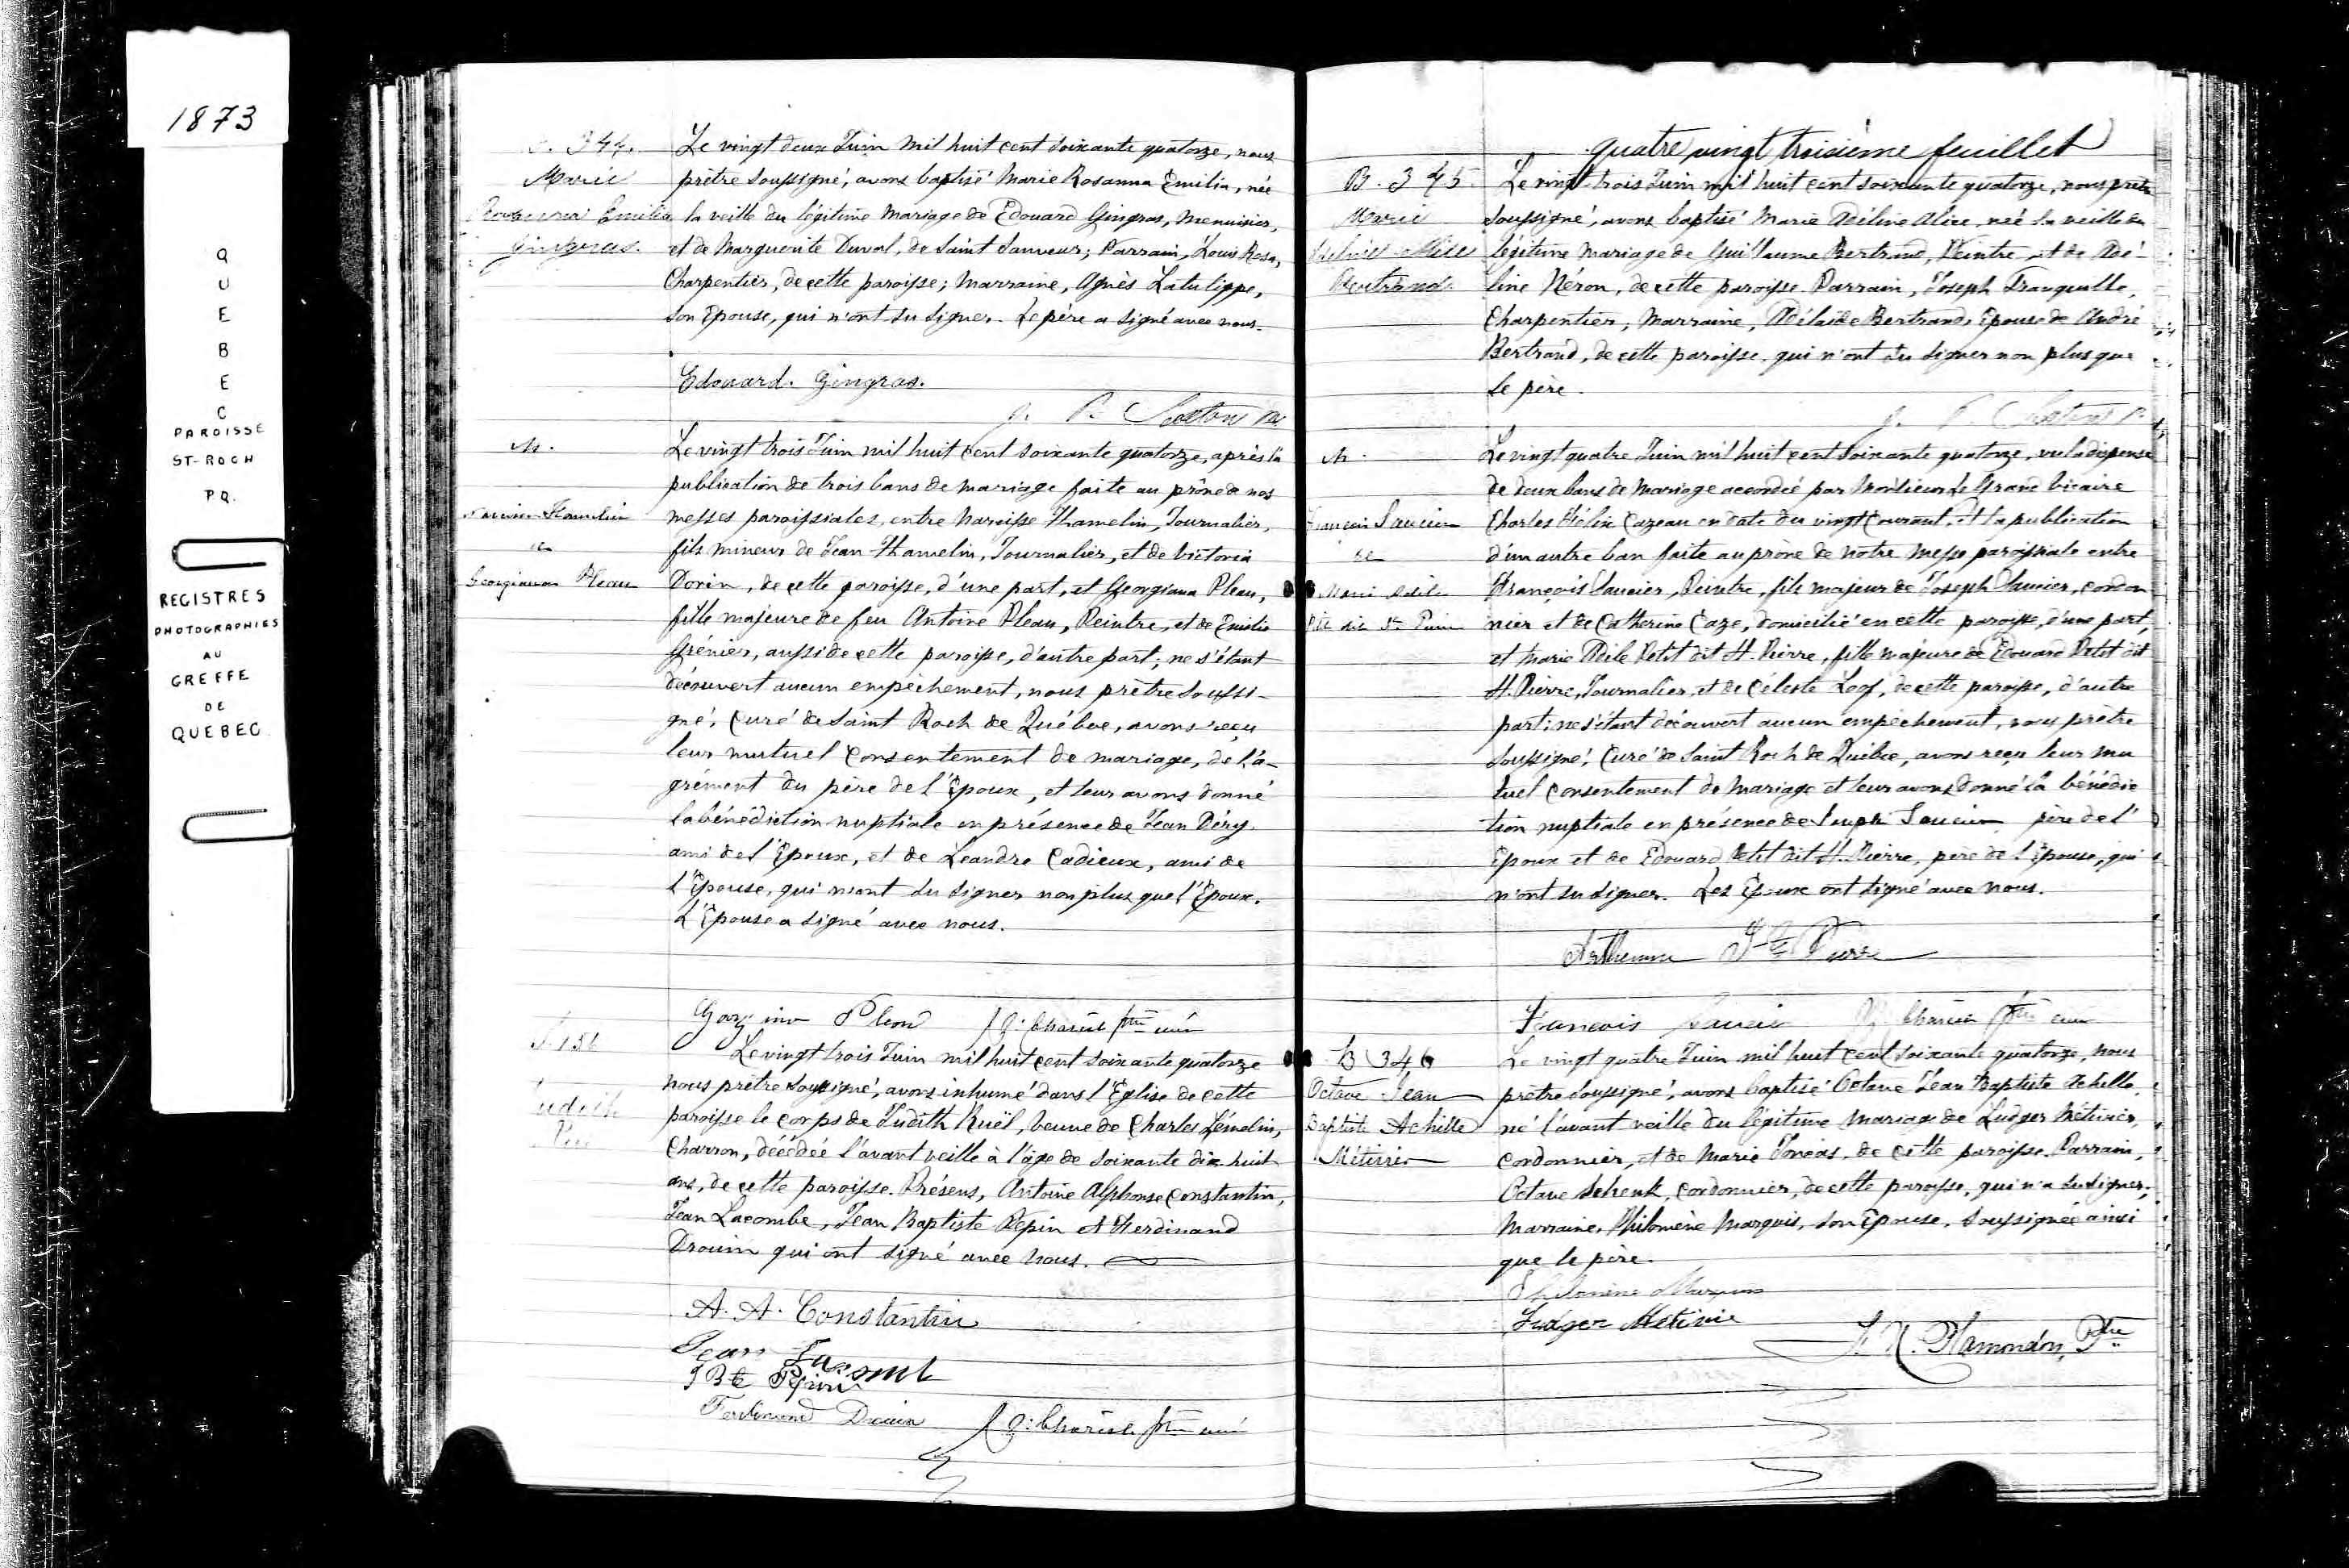 1873
QUEBEC
PAROISSE
ST-ROCH
PQ.
REGISTRES
PHOTOGRAPHIES
AU
GREFFE
DE
QUEBEC
344.
Marie
Emilia
Gingras.
Le vingt deux Juin mil huit cent soixante quatorze, nous
prêtre soussigné, avons baptisé Marie Rosanna Emilia, née
la veille du légitime mariage de Edouard Gingras, Menuisier,
et de Marguerite Duval, de Saint Sauveur; Parrain, Louis Rosa,
Charpentier, de cette paroisse; Marraine, Agnès Latulippe,
son Epouse, qui n'ont su signer. Le père a signé avec nous.
Edouard. Gingras.
M.
Hamelin
&
Georgianna Pleau
Le vingt trois Juin mil huit cent soixante quatorze, après la
publication de trois bans de mariage faite au prône de nos
messes paroissiales, entre Narcisse Hamelin, Journalier,
fils mineur de Jean Hamelin, Journalier, et de Victoria
Dorin, de cette paroisse, d'une part, et Georgiana Pleau,
fille majeure de feu Antoine Pleau, Peintre, et de Emilie
Grénier, aussi de cette paroisse, d'autre part; ne s'étant
découvert aucun empêchement, nous prêtre soussi-
gné, Curé de Saint Roch de Québec, avons reçu
leur mutuel consentement de mariage, de l'a-
grément du père de l'Epoux, et leur avons donné
la bénédiction nuptiale en présence de Jean Déry
ami de l'Epoux, et de Léandre Cadieux, ami de
l'Epouse, qui n'ont su signer non plus que l'Epoux.
L'Epouse a signé avec nous.
Charest ptre curé
S. 136
Judith
Le vingt trois Juin mil huit cent soixante quatorze
nous prêtre soussigné, avons inhumé dans l'Eglise de cette
paroisse le corps de Judith Ruël, Veuve de Charles Lémelin,
Charron, décédée l'avant veille à l'âge de soixante dix huit
ans, de cette paroisse. Présens, Antoine Alphonse Constantin,
Jean Lacombe, Jean Baptiste Pépin et Ferdinand
Drouin qui ont signé avec nous.
A. A. Constantin
Jean Lacomb
J Bte Pépin
Ferdinand Drouin Charest ptre curé
quatre vingt troisième feuillet
B. 345.
Marie
Bertrand
Le vingt trois Juin mil huit cent soixante quatorze, nous prêtre
soussigné, avons baptisé Marie Adéline Alice, née la veille du
légitime mariage de Guillaume Bertrand, Peintre, et de Adé-
line Néron, de cette paroisse. Parrain, Joseph Tranquille,
Charpentier, Marraine, Adélaïde Bertrand, Epouse de André
Bertrand, de cette paroisse, qui n'ont su signer non plus que
le père.
M.
François Saucier
&
Marie Odile
Petit dit St. Pierre
Le vingt quatre Juin mil huit cent soixante quatorze, vu la dispense
de deux bans de mariage accordée par Monsieur Le Grand Vicaire
Charles Félix Cazeau en date du vingt courant, et la publication
d'un autre ban faite au prône de notre messe paroissiale entre
François Saucier, Peintre, fils majeur de Joseph Saucier, cordon
nier et de Catherine Caze, domicilié en cette paroisse, d'une part,
et Marie Odile Petit dit St. Pierre, fille majeure de Edouard Petit dit
St. Pierre, Journalier, et de Céleste, de cette paroisse, d'autre
part; ne s'étant découvert aucun empêchement, nous prêtre
soussigné, Curé de Saint Roch de Québec, avons reçu leur mu
tuel consentement de mariage et leur avons donné la bénédic
tion nuptiale en présence de Joseph Saucier père de l'
Epoux et de Edouard Petit dit St. Pierre, père de l'Epouse, qui
n'ont su signer. Les Epoux ont signé avec nous.
St Pierre
Francois Saucier Charest ptre curé
B 346
Octave Jean
Baptiste Achille
Métivier
Le vingt quatre Juin mil huit cent soixante quatorze, nous
prêtre soussigné, avons baptisé Octave Jean Baptiste Achille,
né l'avant veille du légitime mariage de Ludger Métivier,
cordonnier, et de Marie, de cette paroisse. Parrain,
Octave Schenk, cordonnier, de cette paroisse, qui n'a su signer,
Marraine, Philomène Marquis, son Epouse, soussignée ainsi
que le père.
Philomène Marquis
Ludger Metivie
Plamondon, Ptre